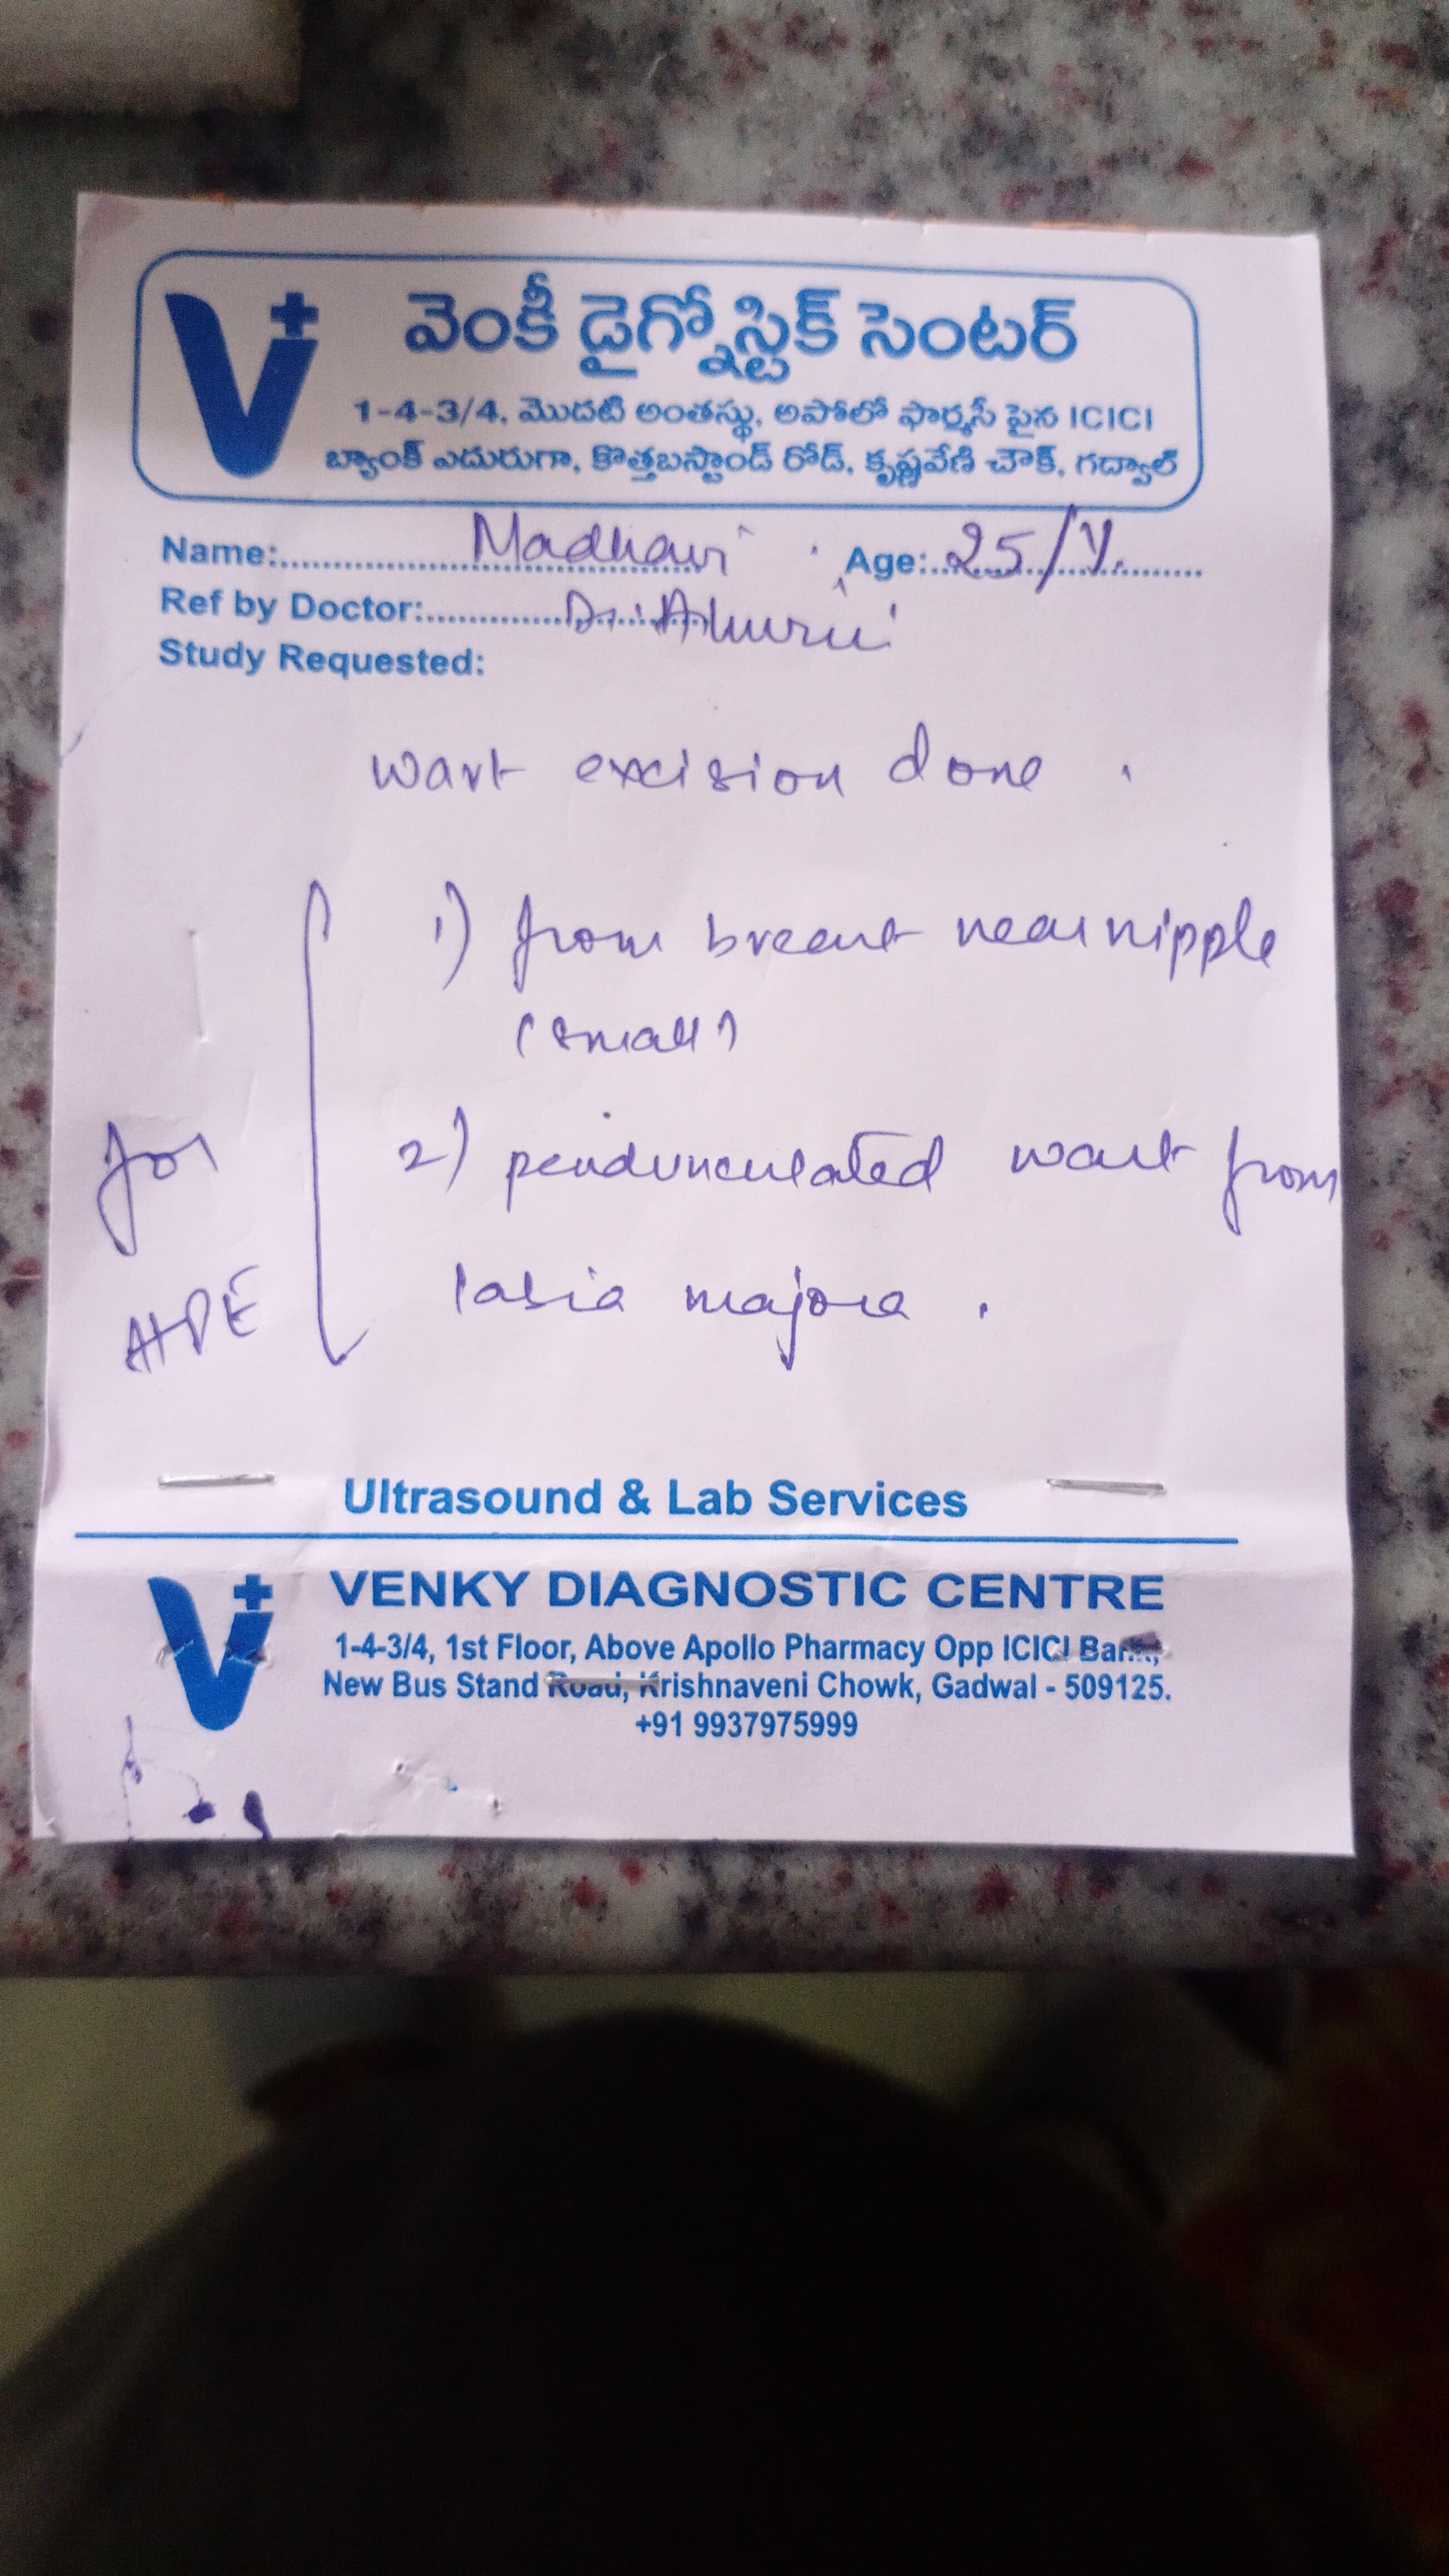 V+
వెంకీ డైగ్నోస్టిక్ సెంటర్
1-4-3/4, మొదటి అంతస్థు, అపోలో ఫార్మసీ పైన ICICI
బ్యాంక్ ఎదురుగా, కొత్తబస్టాండ్ రోడ్, కృష్ణవేణి చౌక్, గద్వాల్
Name: Madhavi Age: 25/Y.
Ref by Doctor: Dr.
Study Requested:
wart excision done.
1) from breast near nipple
(small)
for
2) pendunculated wart from
HPE
labia majora.
Ultrasound & Lab Services
V+
VENKY DIAGNOSTIC CENTRE
1-4-3/4, 1st Floor, Above Apollo Pharmacy Opp ICICI Bank,
New Bus Stand Road, Krishnaveni Chowk, Gadwal - 509125.
+91 9937975999